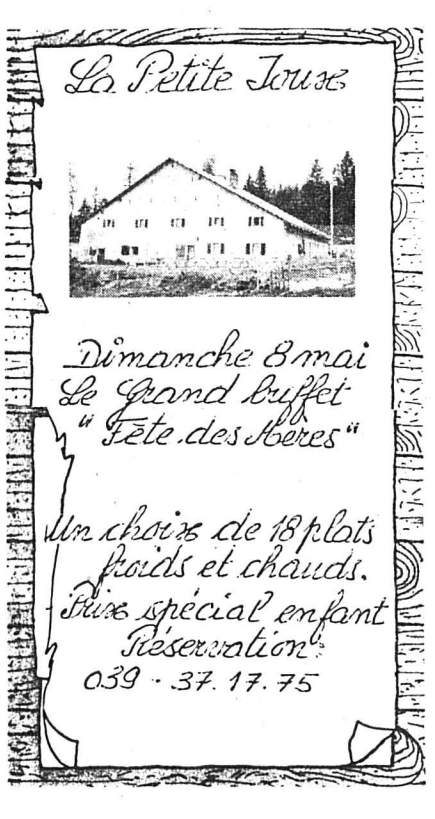 La Petite Joux
Dimanche 8 mai
Le Grand buffet
"Fête des Mères"
Un choix de 18 plats
froids et chauds.
Prix spécial enfant
Réservation:
039 - 37.17.75